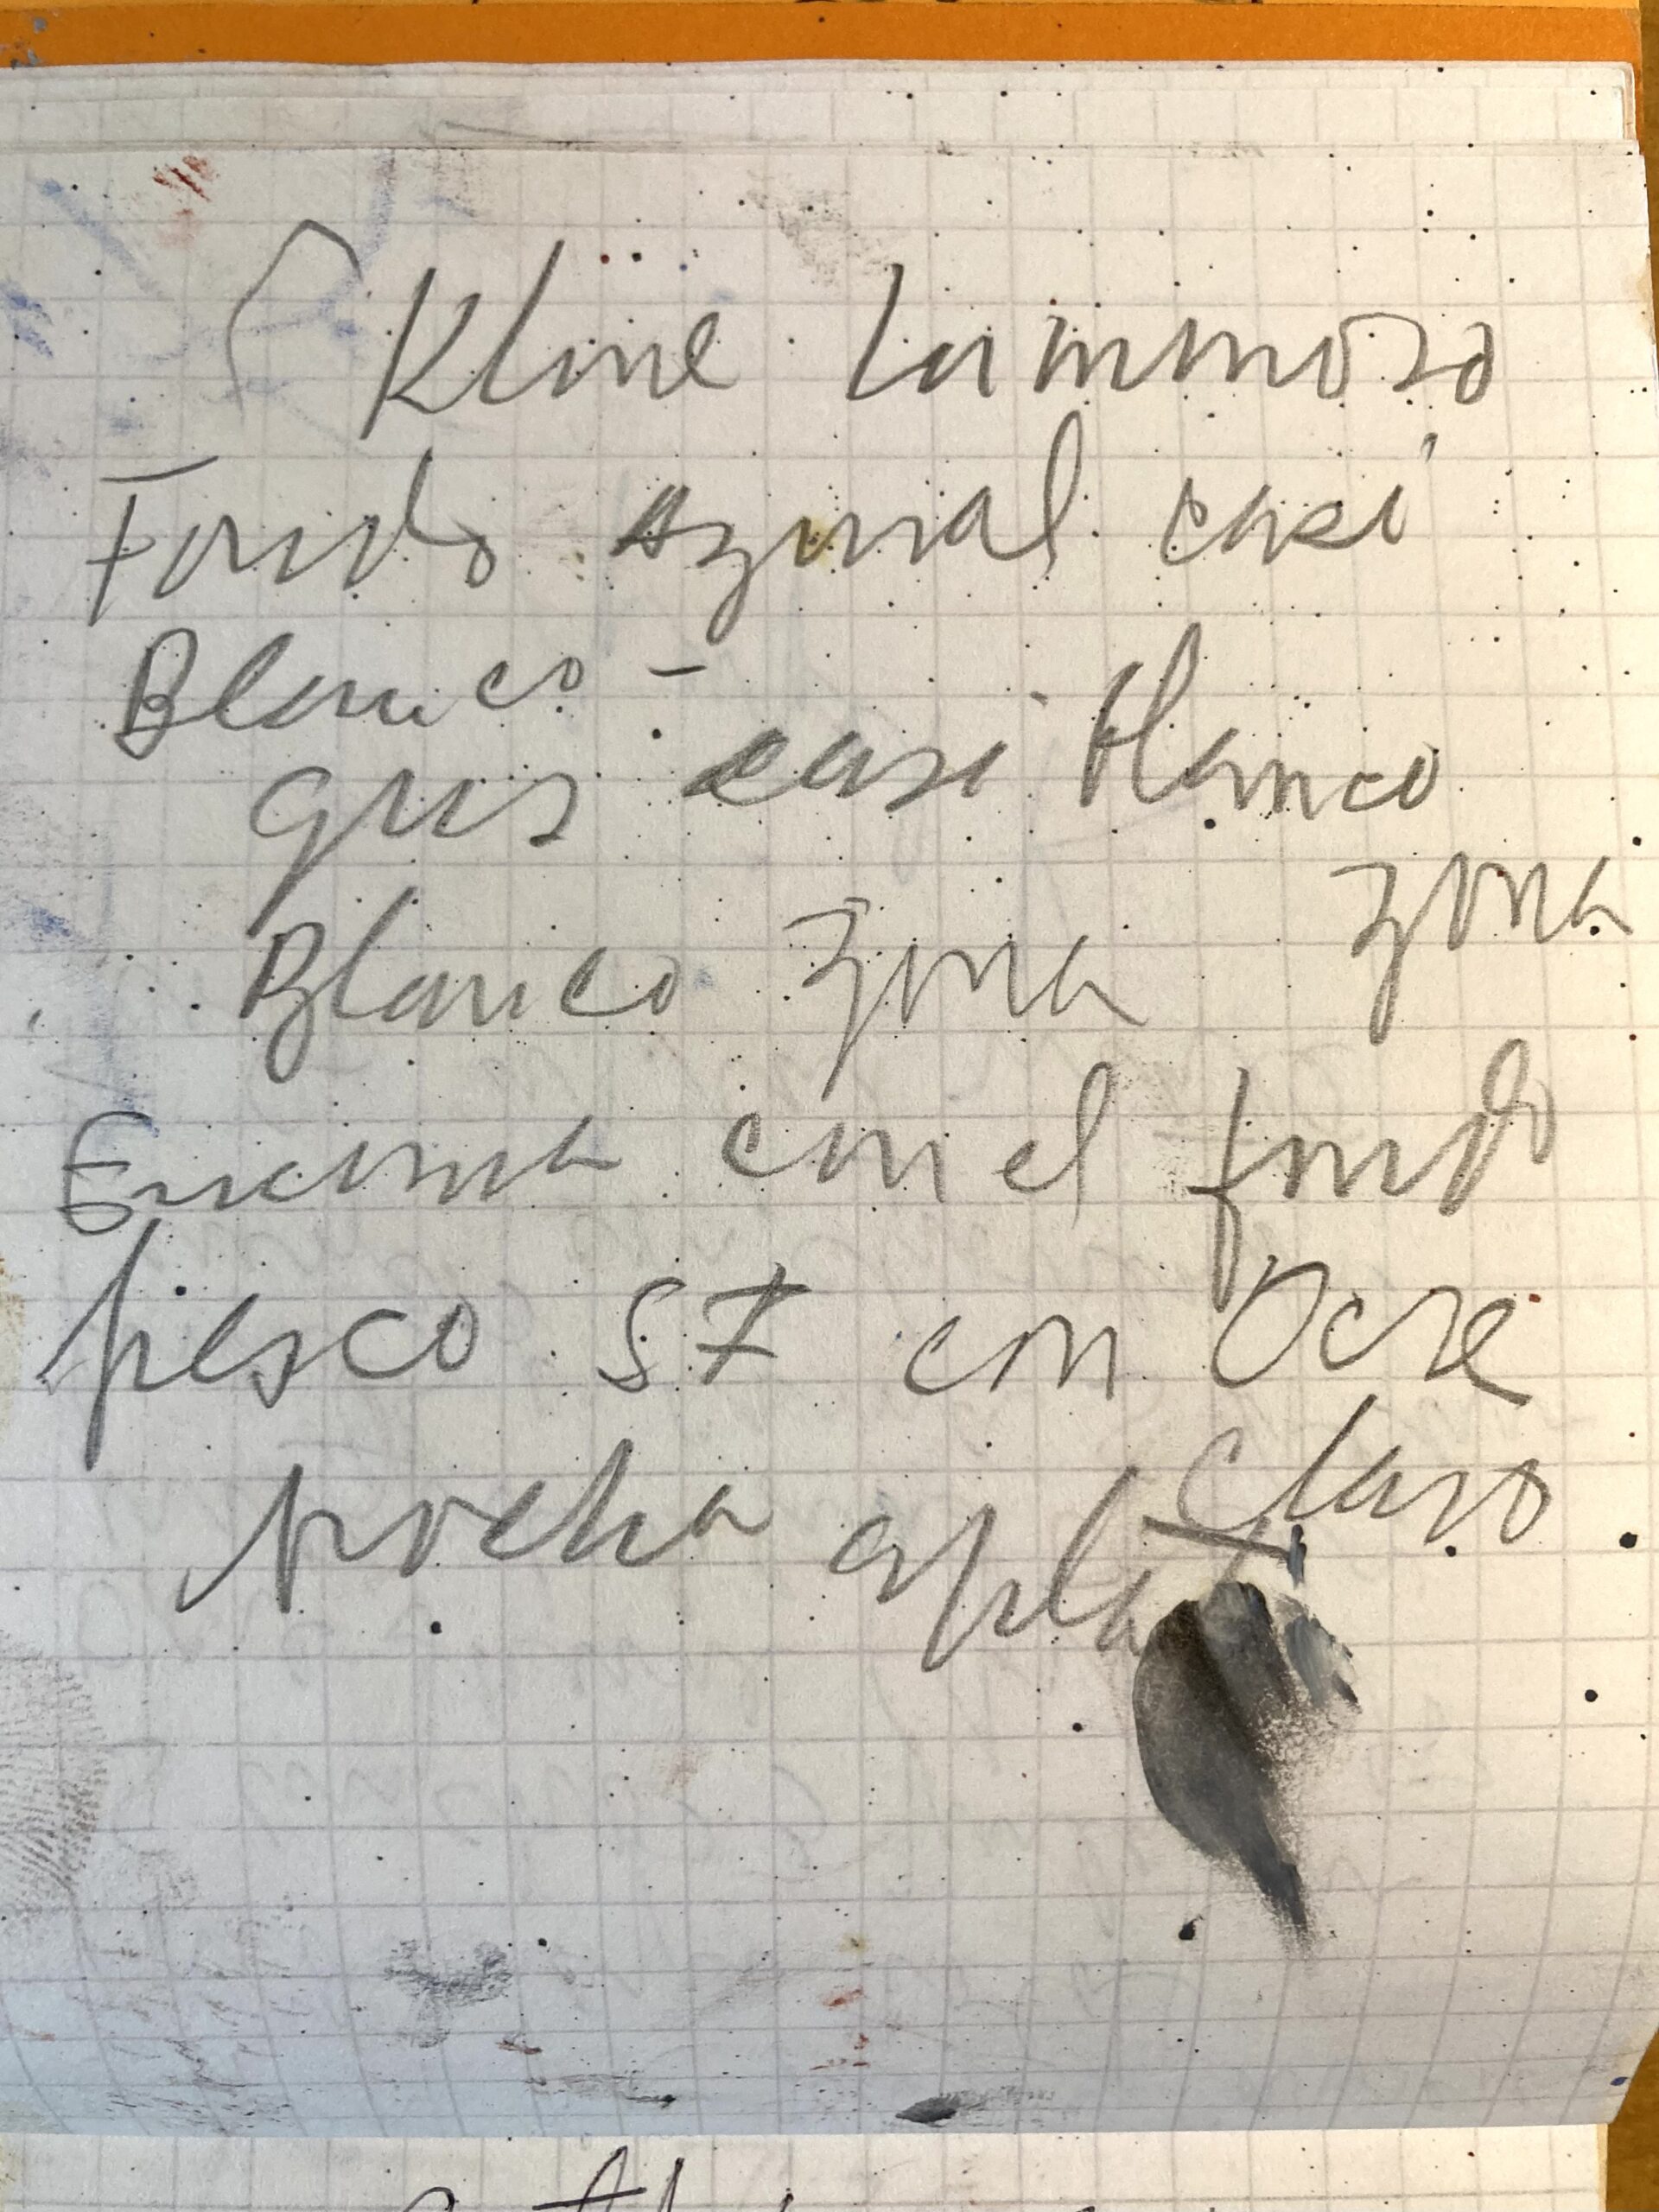 Kline luminoso
Fondo azunal casi
Blanco -
gris casi blanco
Blanco zona zona
Encima con el fondo
fresco S7 con Ocre
claro
brocha apla